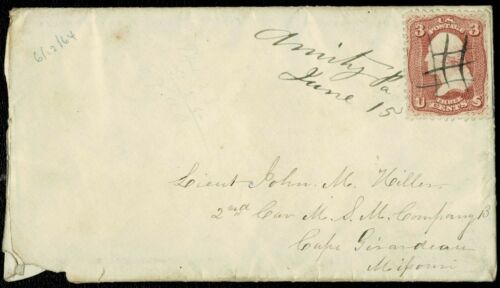 6/12/64
Amity Pa
June 15
U.S. POSTAGE
3 3
THREE
U CENTS S
Lieut John. M. Hiller
2nd Cav M. S. M. Company B
Cape Girardeau
Missouri